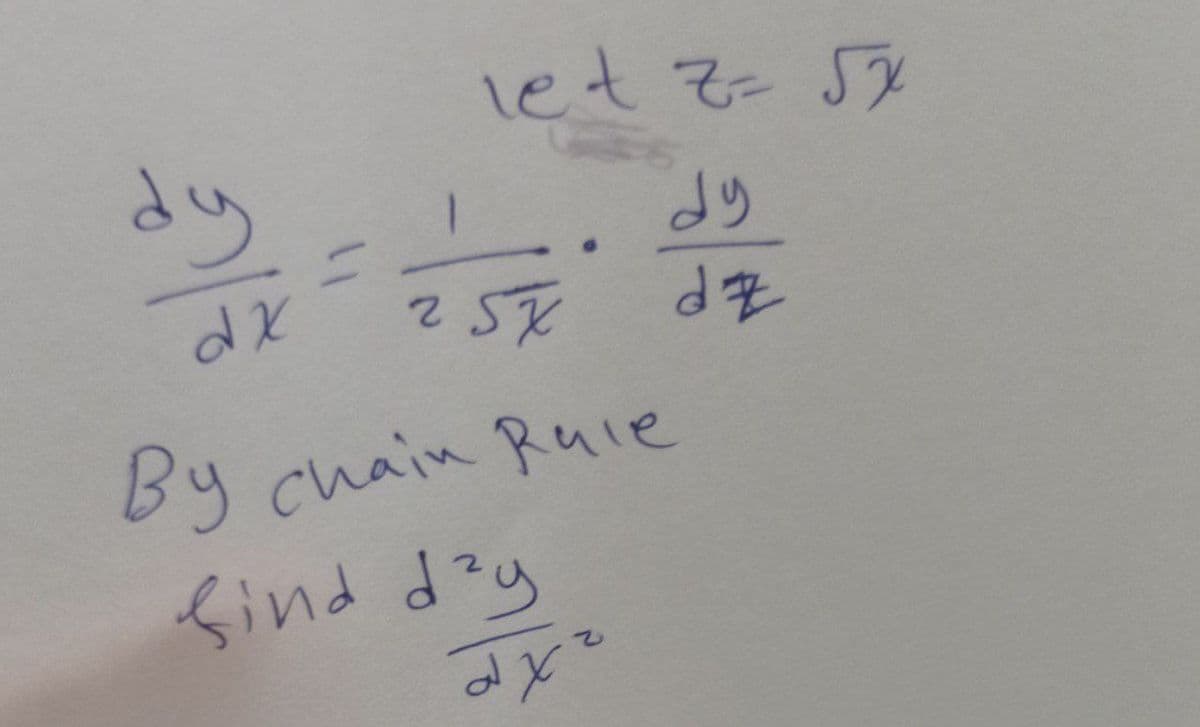 let z = √x
dy/dx = 1/(2√x) · dy/dz
By chain Rule
find d²y/dx²